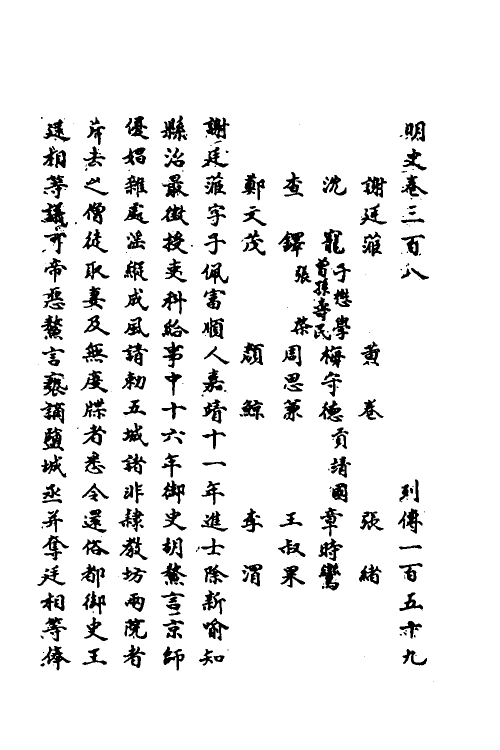 明史卷三百八 列傳一百五十九
謝廷蒞 黄卷 張緒
沈寵 子懋學 曾孫壽民 梅守德 貢靖國 章時鸞
查鐸 張棨 周思兼 王叔果
鄭文茂 顔鯨 李渭
謝廷蒞字子佩富順人嘉靖十一年進士除新喻知
縣治最徵授吏科給事中十六年御史胡鰲言京師
優娼雜處滛縱成風請勅五城諸非隸教坊兩院者
斥去之僧徒取妻及無度牒者悉令還俗都御史王
廷相等議可帝惡鰲言褻謫鹽城丞并奪廷相等俸